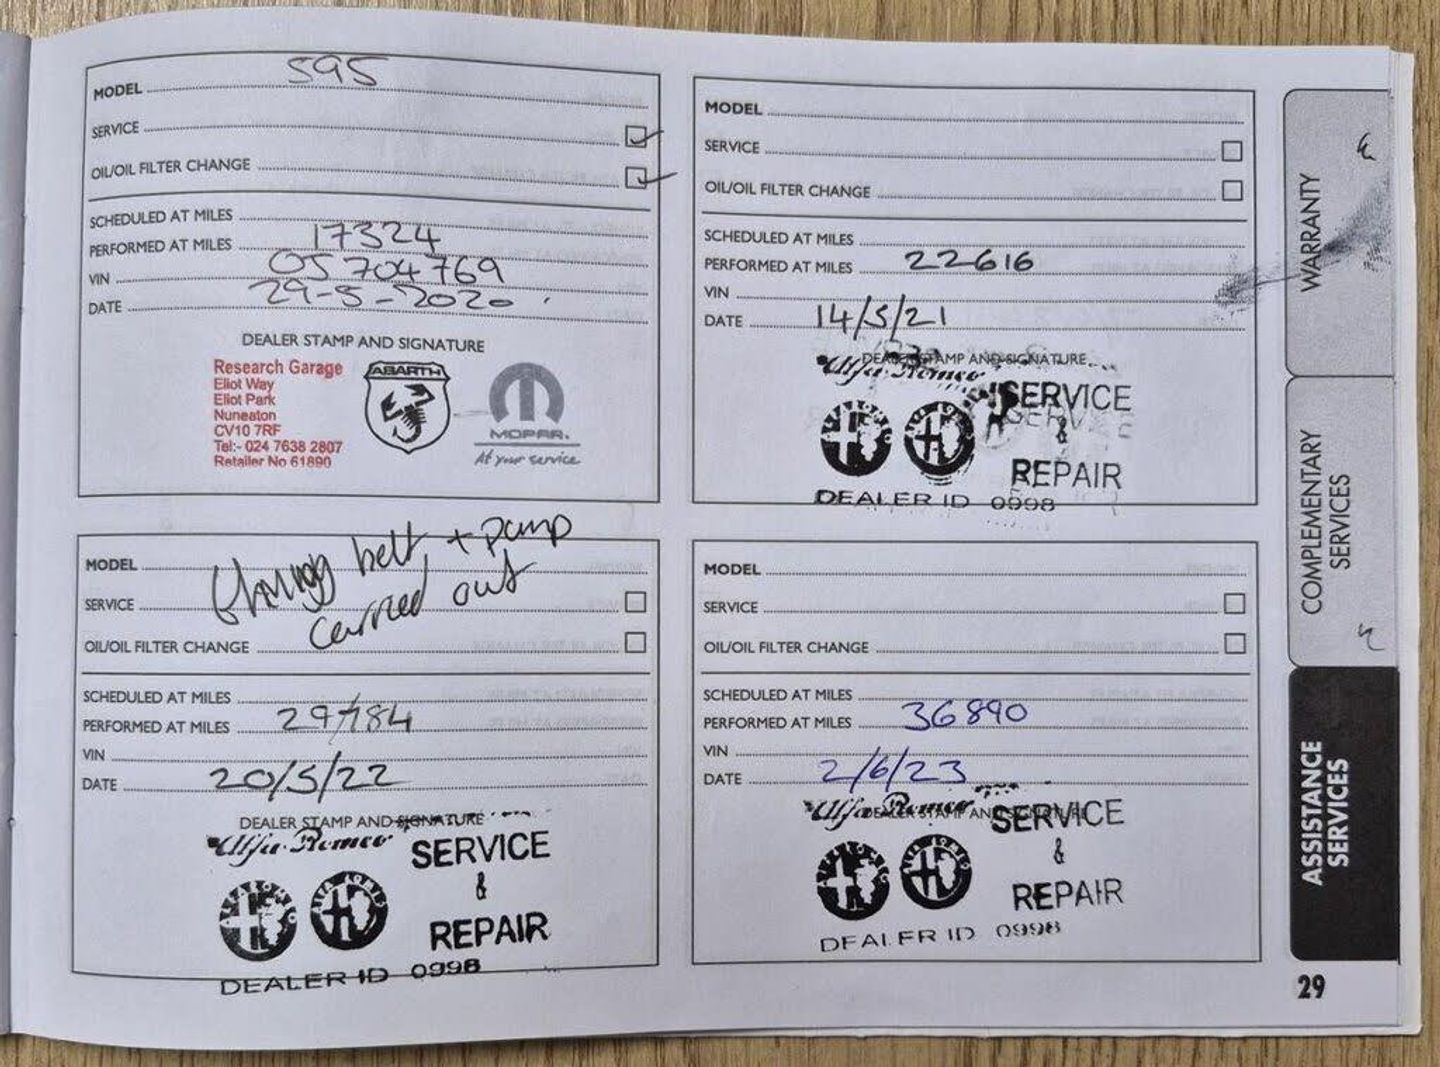 MODEL 595
SERVICE
OIL/OIL FILTER CHANGE
SCHEDULED AT MILES
PERFORMED AT MILES 17324
VIN 05704769
DATE 29-5-2020
DEALER STAMP AND SIGNATURE
Research Garage
Eliot Way
Eliot Park
Nuneaton
CV10 7RF
Tel:- 024 7638 2807
Retailer No 61890
ABARTH
MOPAR.
At your service
MODEL
SERVICE
OIL/OIL FILTER CHANGE
SCHEDULED AT MILES
PERFORMED AT MILES 22616
VIN
DATE 14/5/21
DEALER STAMP AND SIGNATURE
Alfa Romeo SERVICE
&
REPAIR
DEALER ID 0998
belt + pump
carried out
MODEL
SERVICE
OIL/OIL FILTER CHANGE
SCHEDULED AT MILES
PERFORMED AT MILES 29784
VIN
DATE 20/5/22
DEALER STAMP AND SIGNATURE
Alfa Romeo SERVICE
&
REPAIR
DEALER ID 0998
MODEL
SERVICE
OIL/OIL FILTER CHANGE
SCHEDULED AT MILES
PERFORMED AT MILES 36890
VIN
DATE 2/6/23
DEALER STAMP AND SIGNATURE
Alfa Romeo SERVICE
&
REPAIR
DEALER ID 0998
WARRANTY
COMPLEMENTARY
SERVICES
ASSISTANCE
SERVICES
29